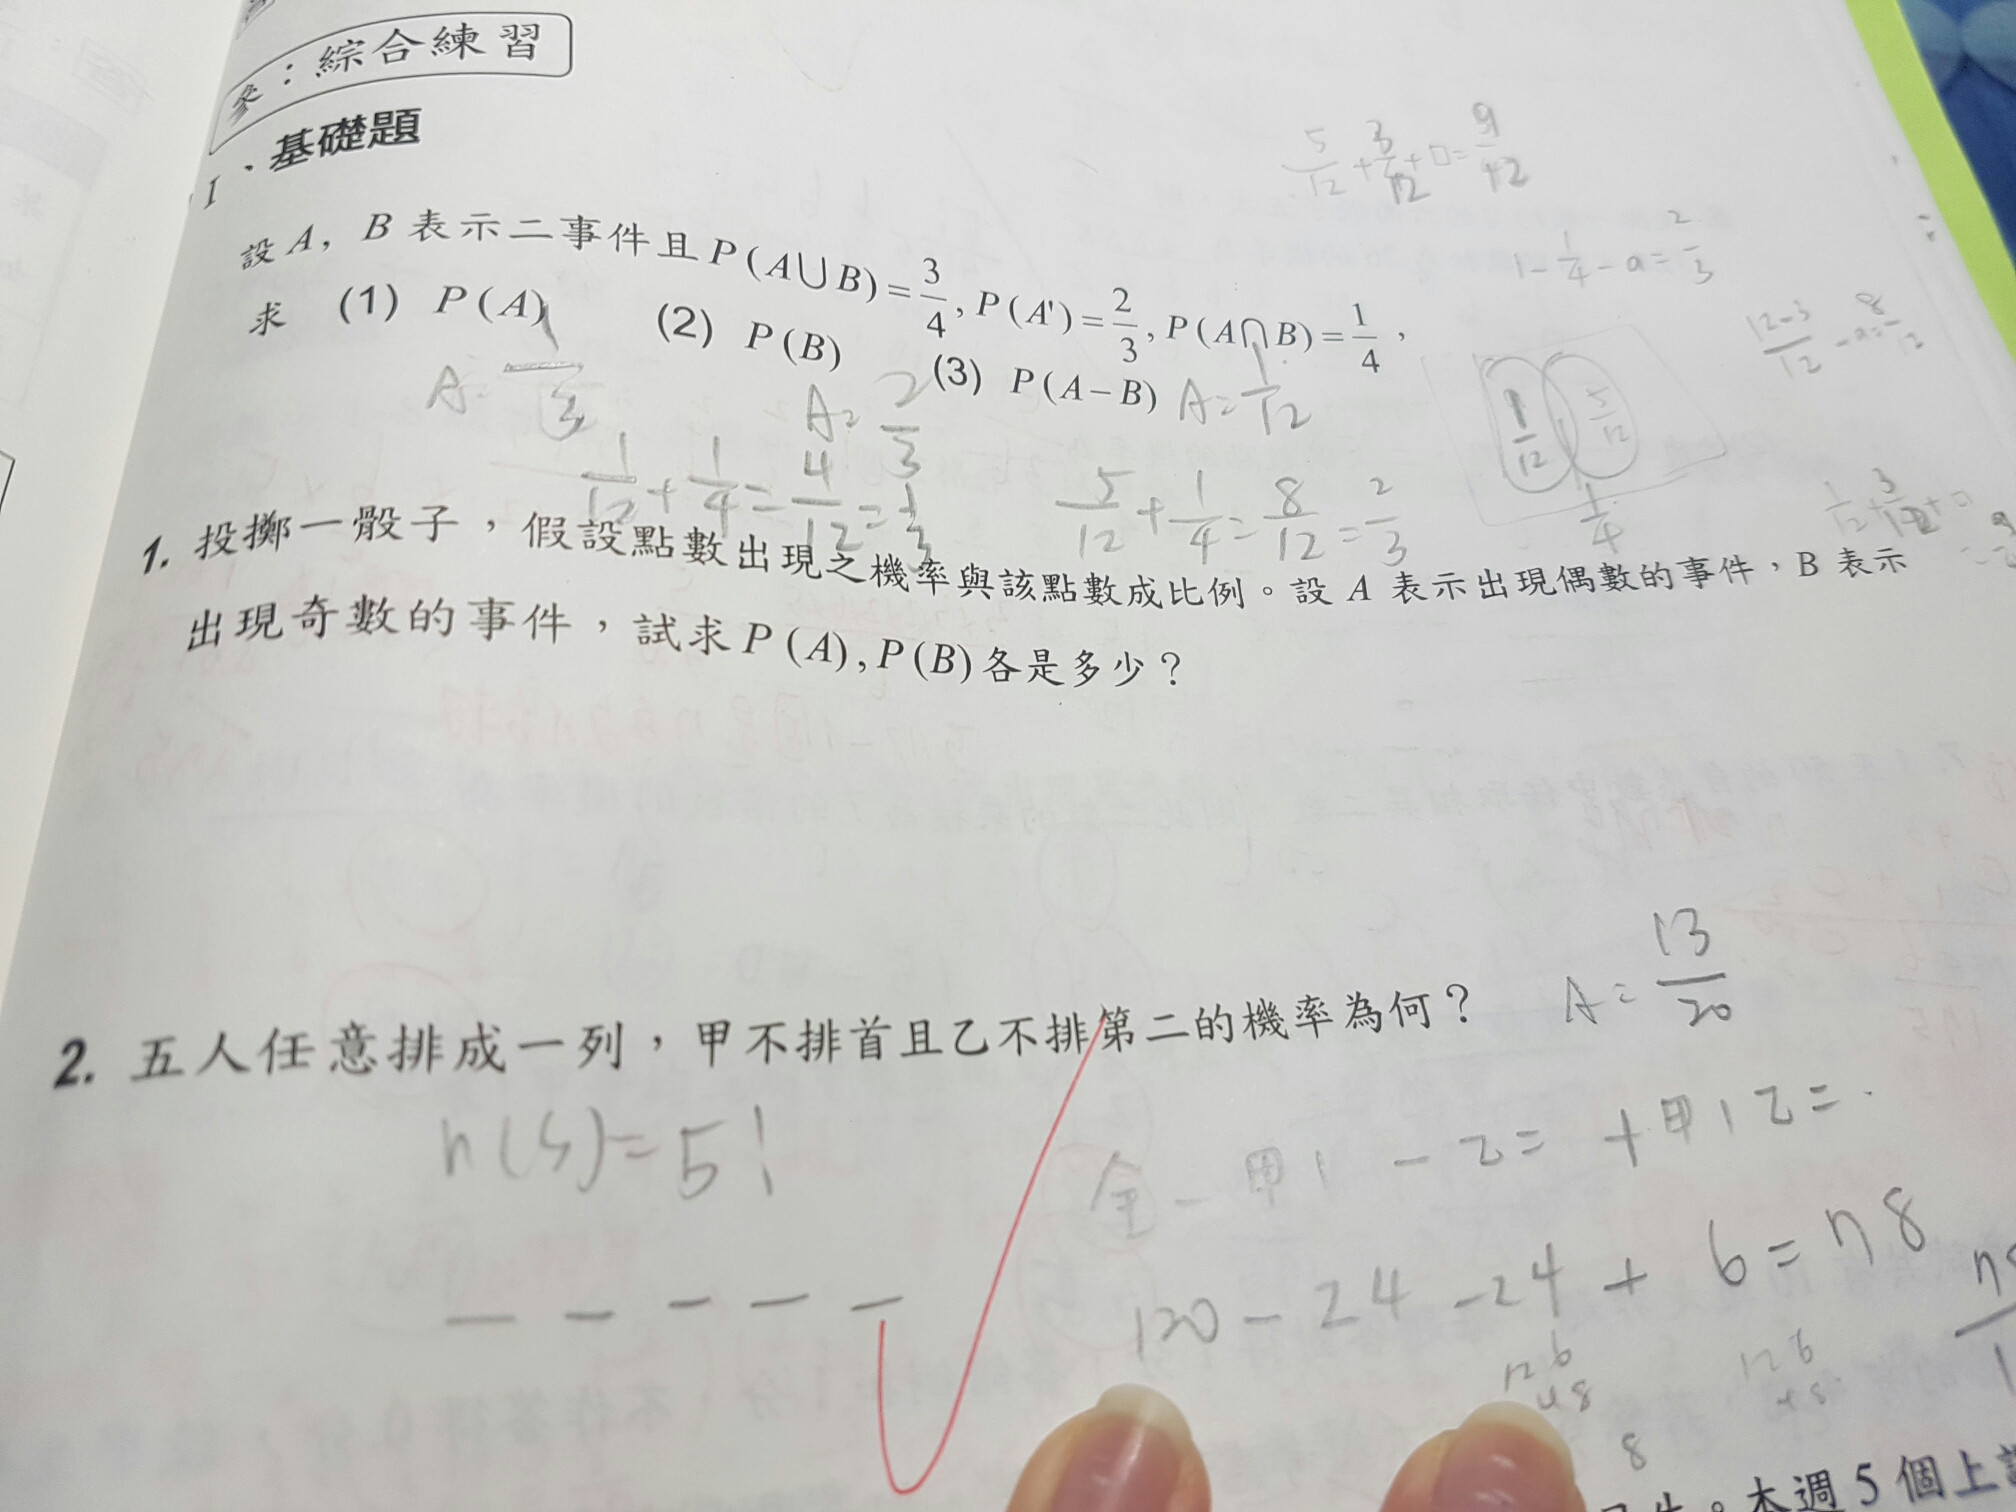 參：綜合練習
1、基礎題
設 A, B 表示二事件且 P(A∪B)=3/4, P(A')=2/3, P(A∩B)=1/4，
求 (1) P(A) (2) P(B) (3) P(A−B)
A=1/3 A=2/3 A=1/12
1/12+1/4=4/12=1/3
5/12+1/4=8/12=2/3
5/12+3/12+□=9/12
1-1/4-a=2/3
12-3/12-a=8/12
1/12 5/12
1/4
1/12+3/12+□
1. 投擲一骰子，假設點數出現之機率與該點數成比例。設 A 表示出現偶數的事件，B 表示
出現奇數的事件，試求 P(A), P(B) 各是多少？
2. 五人任意排成一列，甲不排首且乙不排第二的機率為何？ A=13/20
n(S)=5!
全-甲1-乙=+甲1乙=
120-24-24+6=78
126
48
8
126
本週5個上